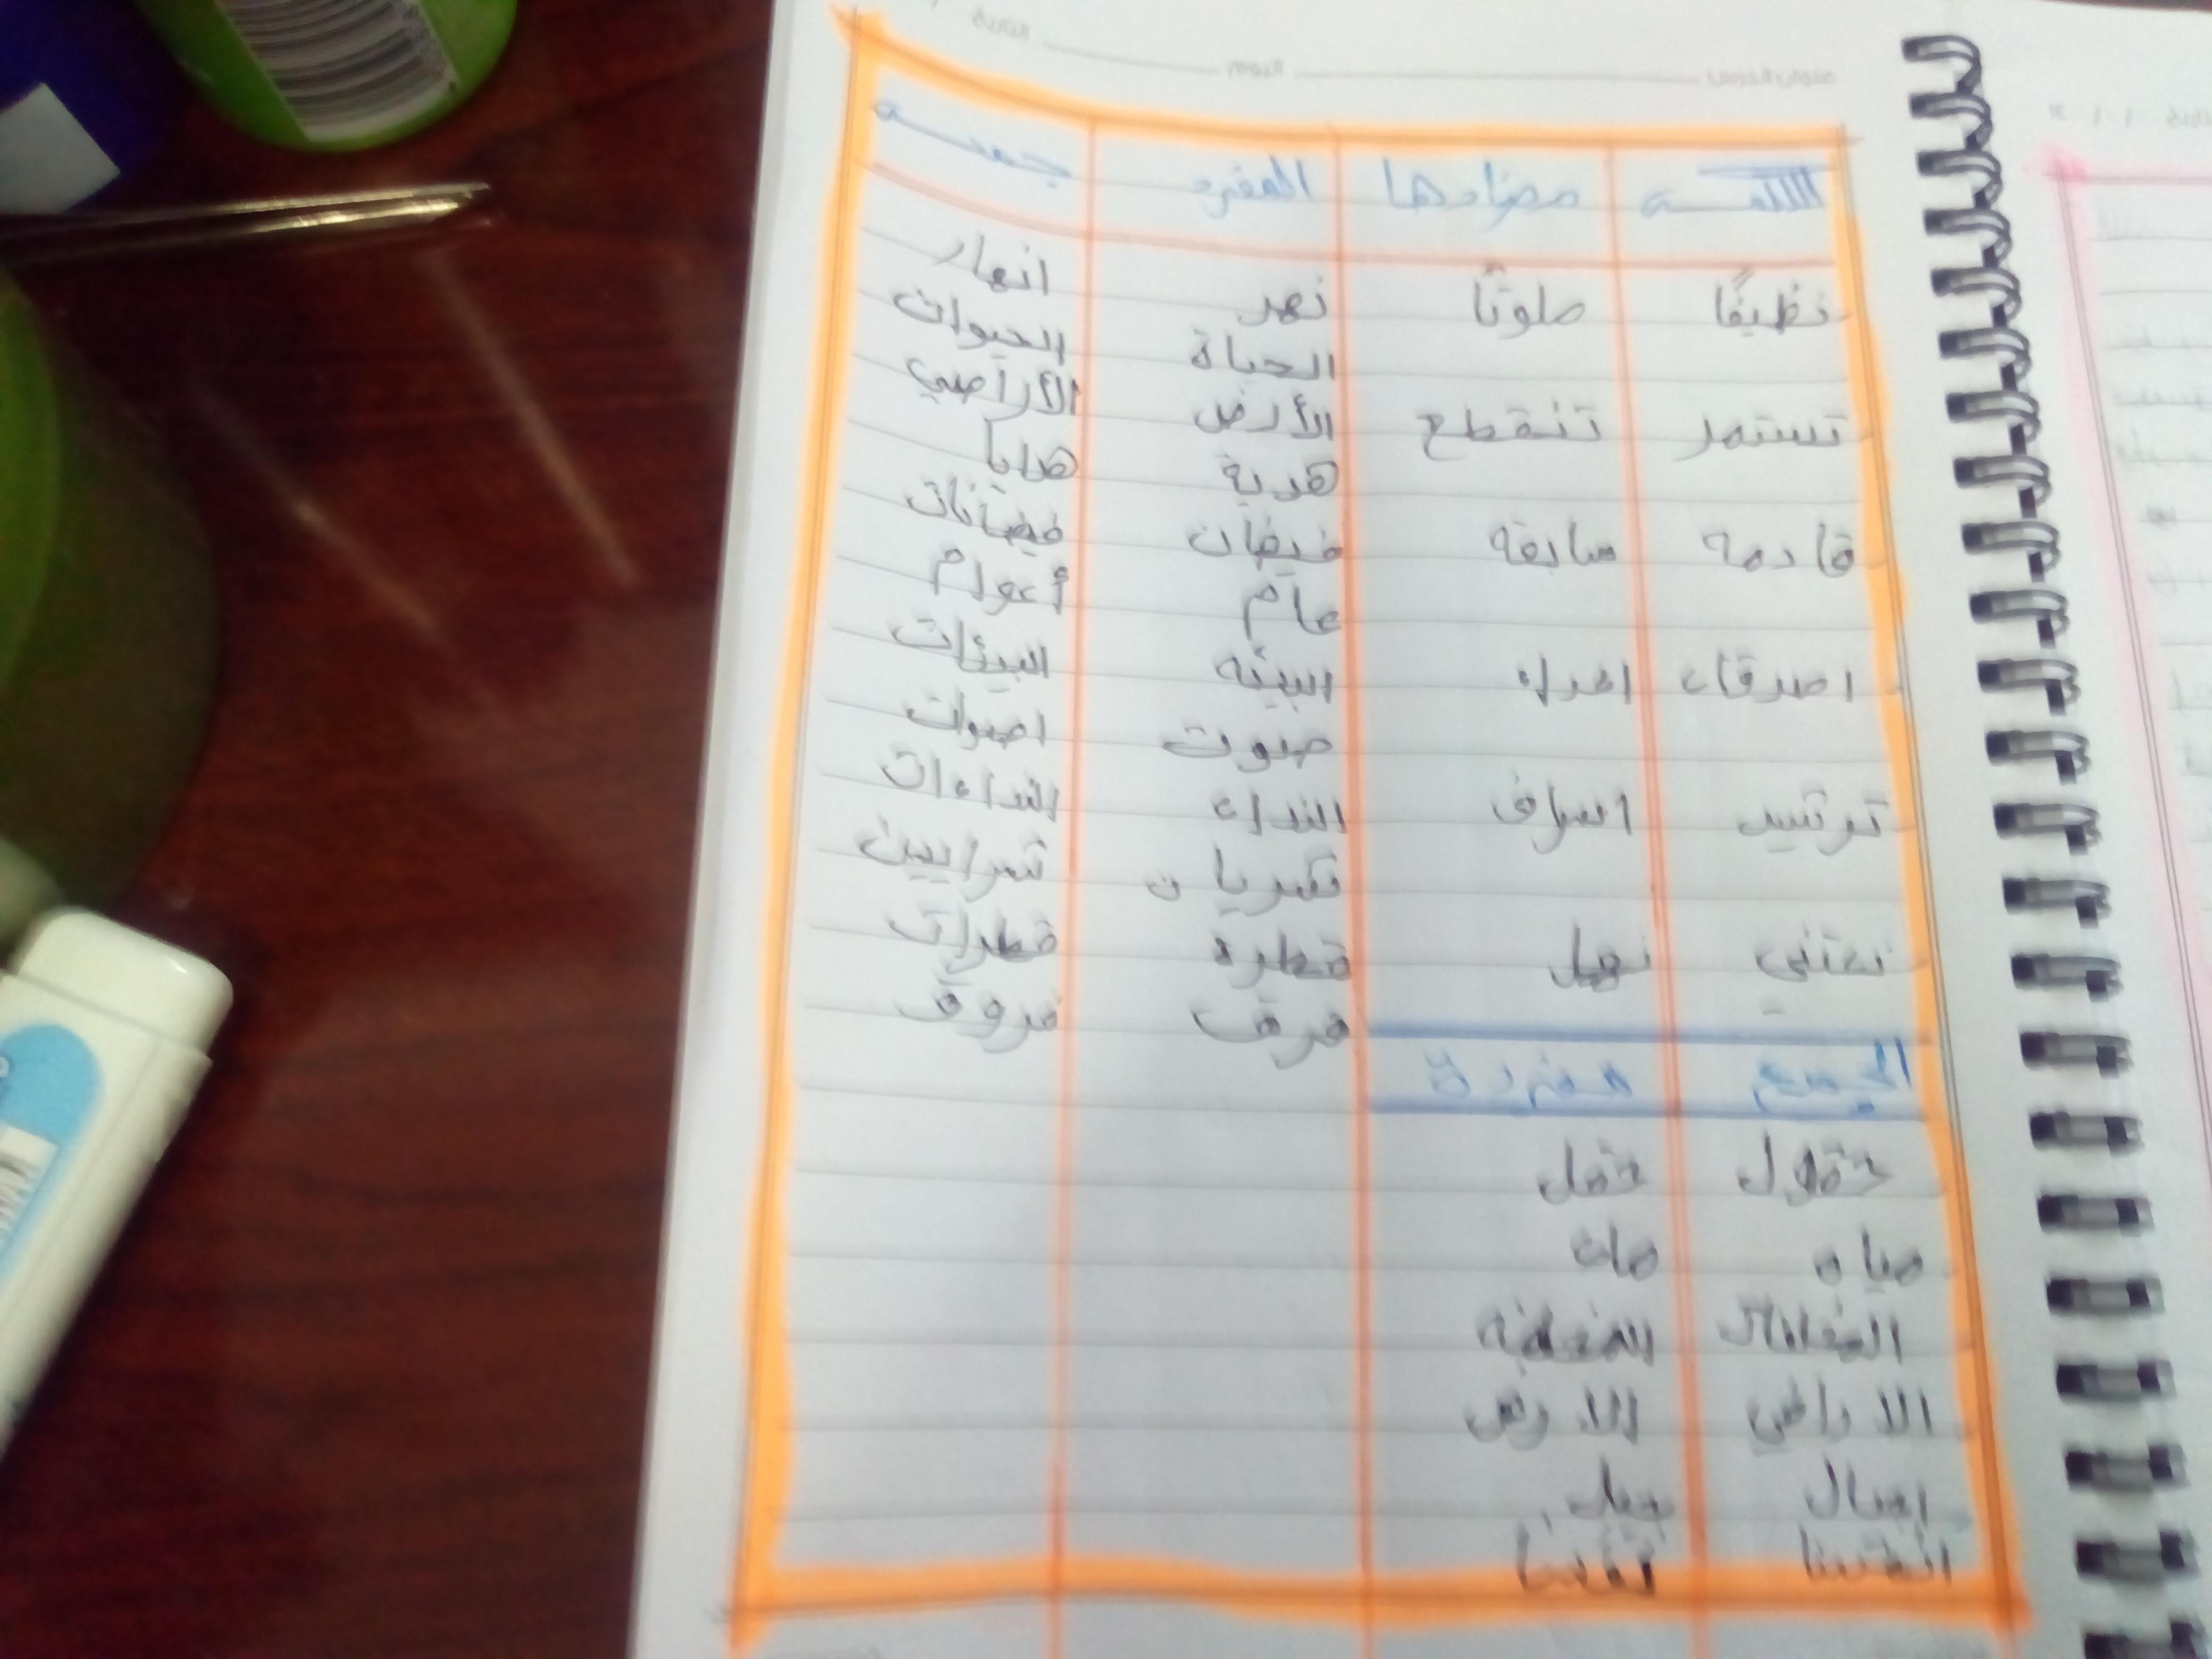 الكلمة مضادها المفرد جمعه
نظيفًا ملوثًا نهر انهار
الحياة الحيوات
تستمر تنقطع الأرض الأراضي
هدية هدايا
قادمة سابقة فيضان فيضانات
عام أعوام
اصدقاء اعداء البيئه البيئات
صوت اصوات
ترشيد اسراف النداء النداءات
شرايين
نعتني نهمل قطره قطرات
فرق فروق
الجمع مفردة
حقول حقل
مياه ماء
الاراضي الارض
اجيال جيل
انفسنا نفسنا